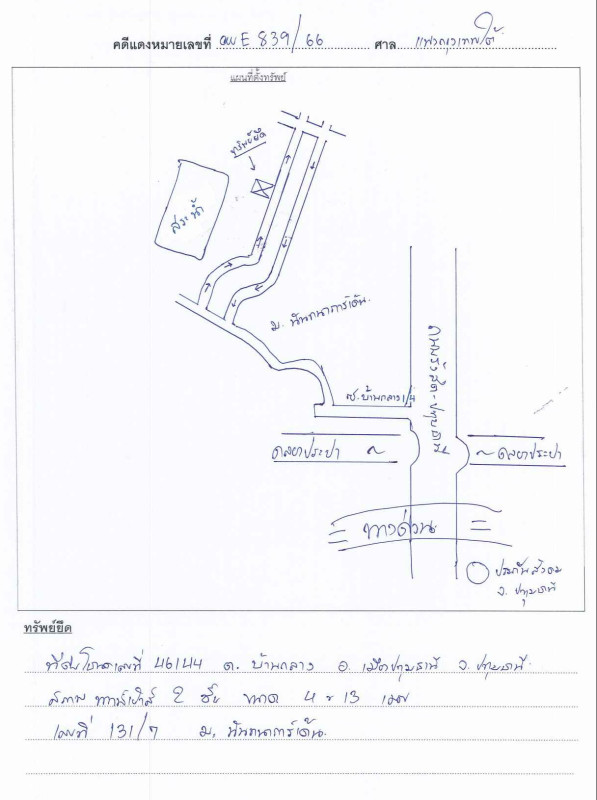 คดีแดงหมายเลขที่ ผบE 839/66 ศาล แพ่งกรุงเทพใต้
แผนที่ตั้งทรัพย์
ทรัพย์ยึด
สระน้ำ
ม. นันทนาการ์เด้น
ซ.บ้านกลาง 1/4
ถนนรังสิต-ปทุมธานี
คลองประปา ~
~ คลองประปา
= ทางด่วน =
ประกันสังคม
จ. ปทุมธานี
ทรัพย์ยึด
ที่ดินโฉนดเลขที่ 46144 ต. บ้านกลาง อ. เมืองปทุมธานี จ. ปทุมธานี
สภาพ ทาวน์เฮ้าส์ 2 ชั้น ขนาด 4 x 13 เมตร
เลขที่ 131/7 ม. นันทนาการ์เด้น